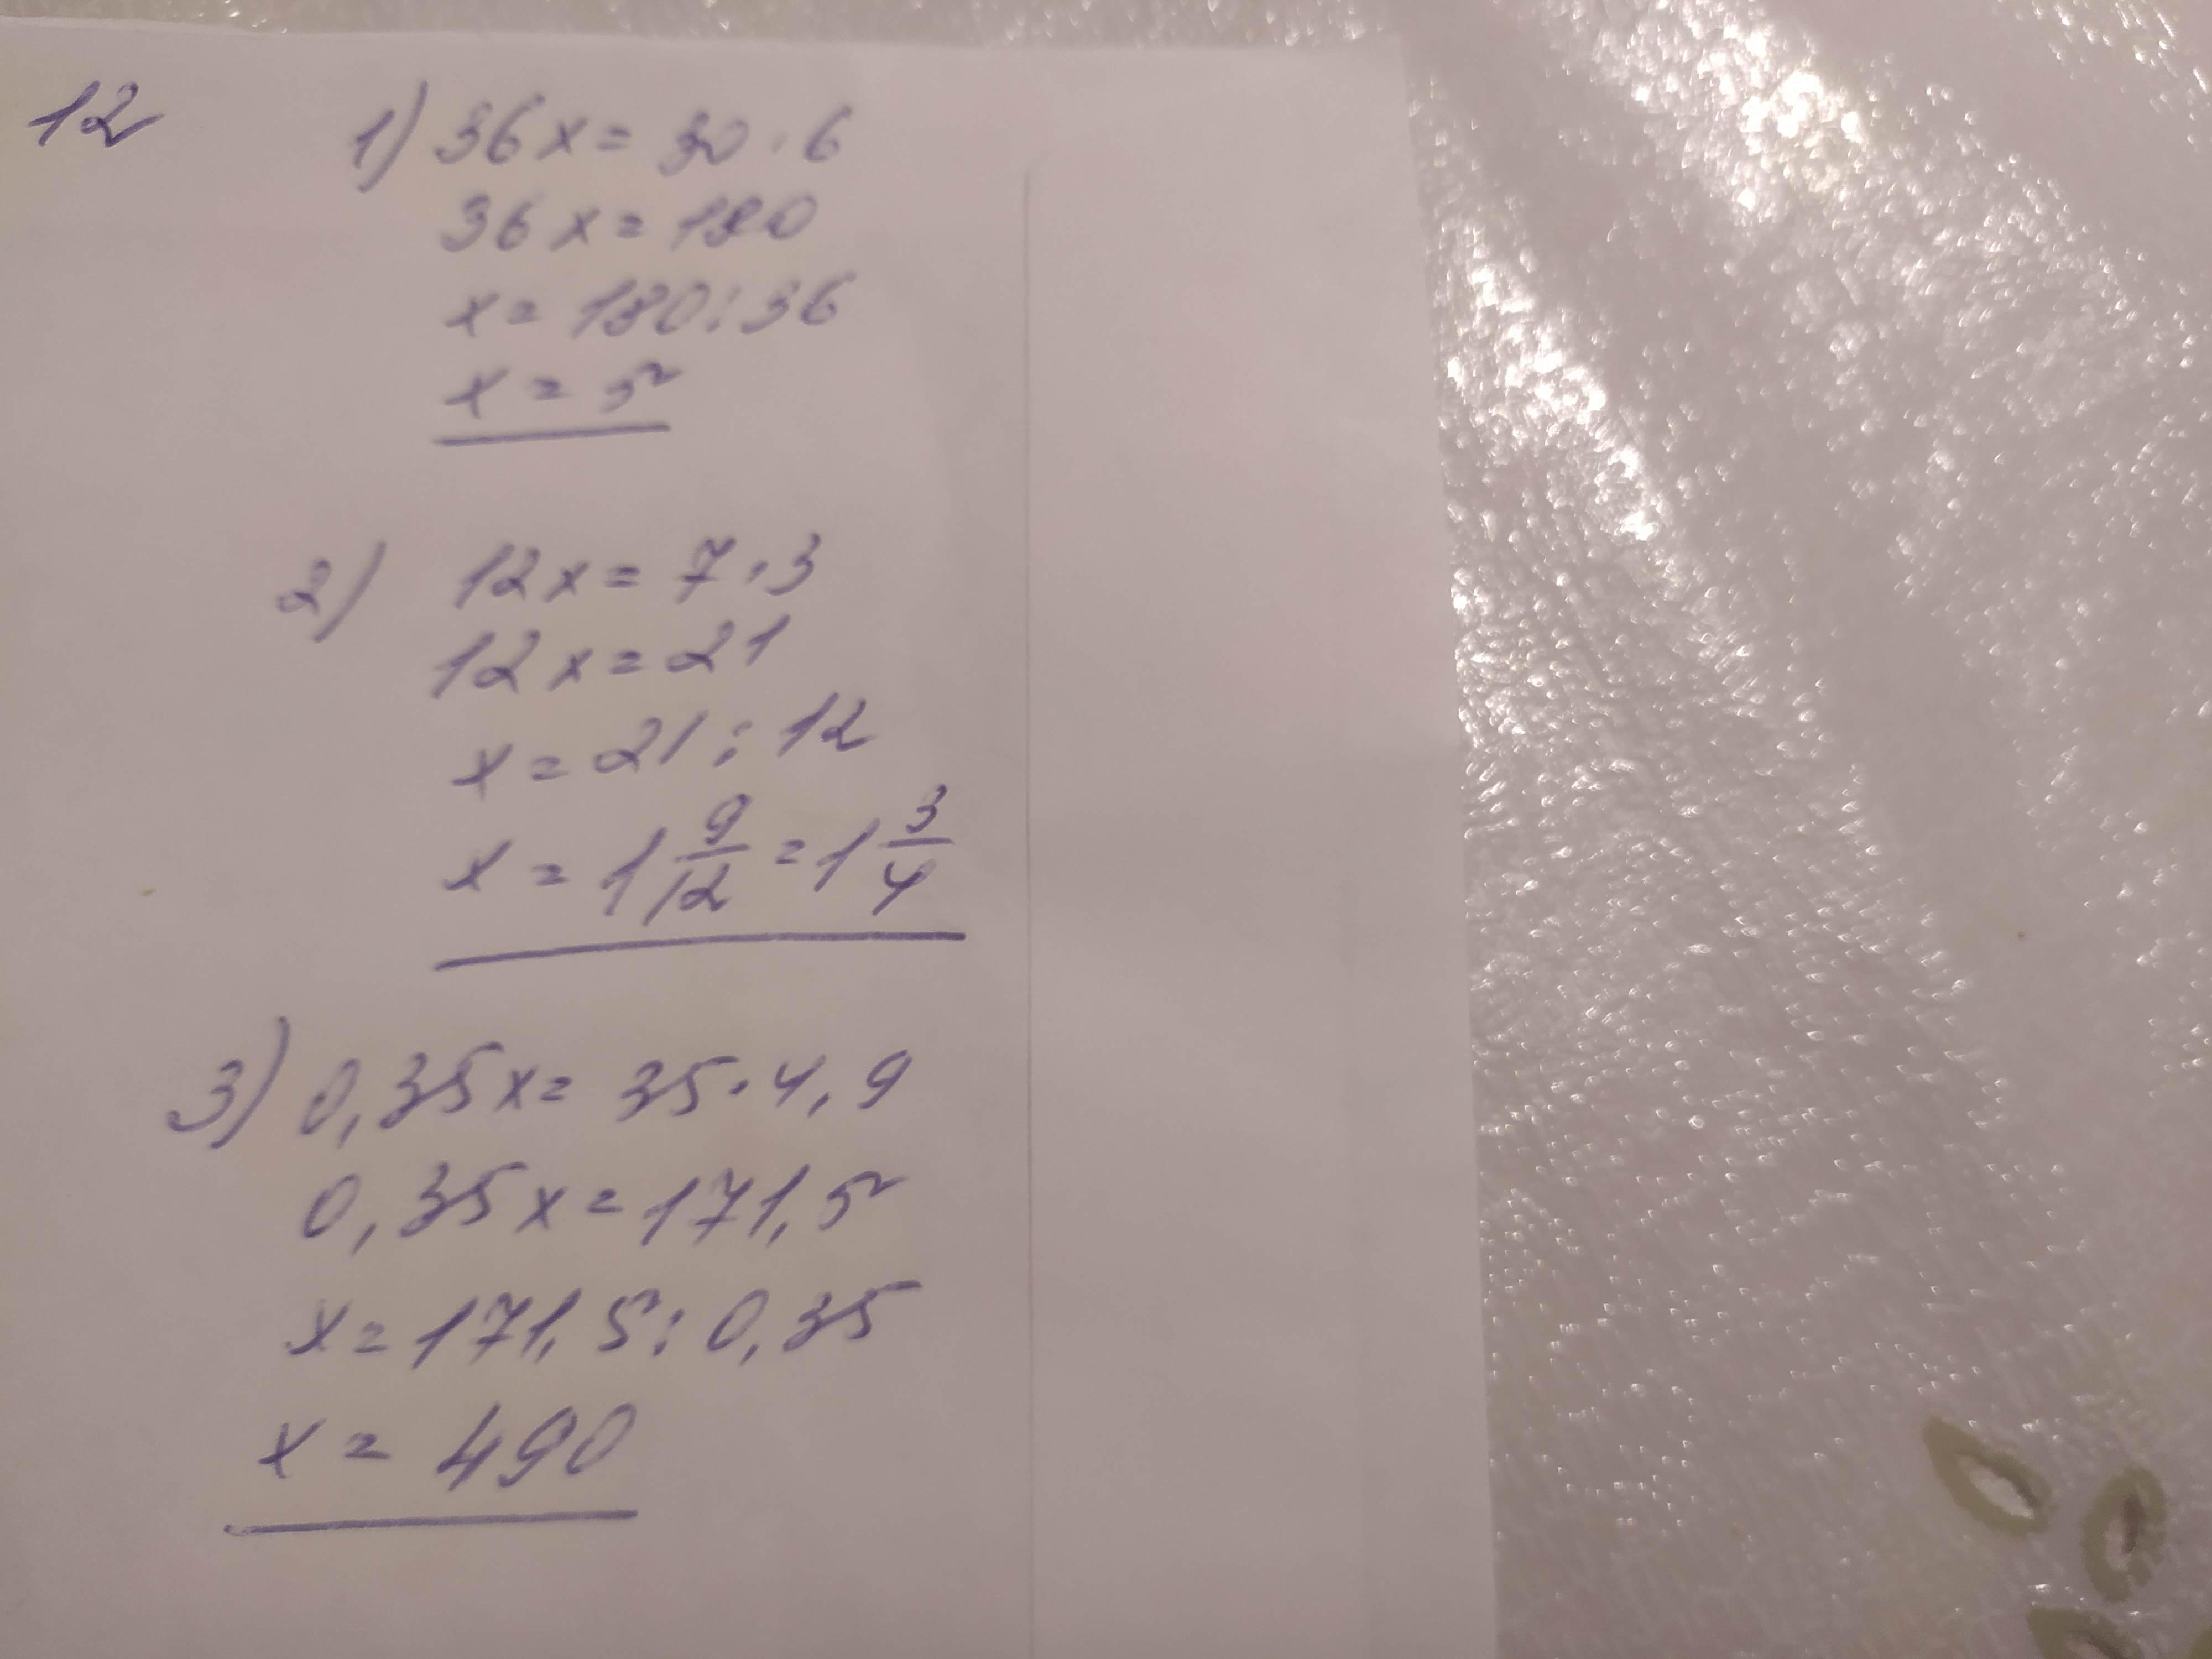 12
1) 36x = 30 · 6
36x = 180
x = 180 : 36
x = 5
2) 12x = 7 · 3
12x = 21
x = 21 : 12
x = 1 9/12 = 1 3/4
3) 0,35x = 35 · 4,9
0,35x = 171,5
x = 171,5 : 0,35
x = 490